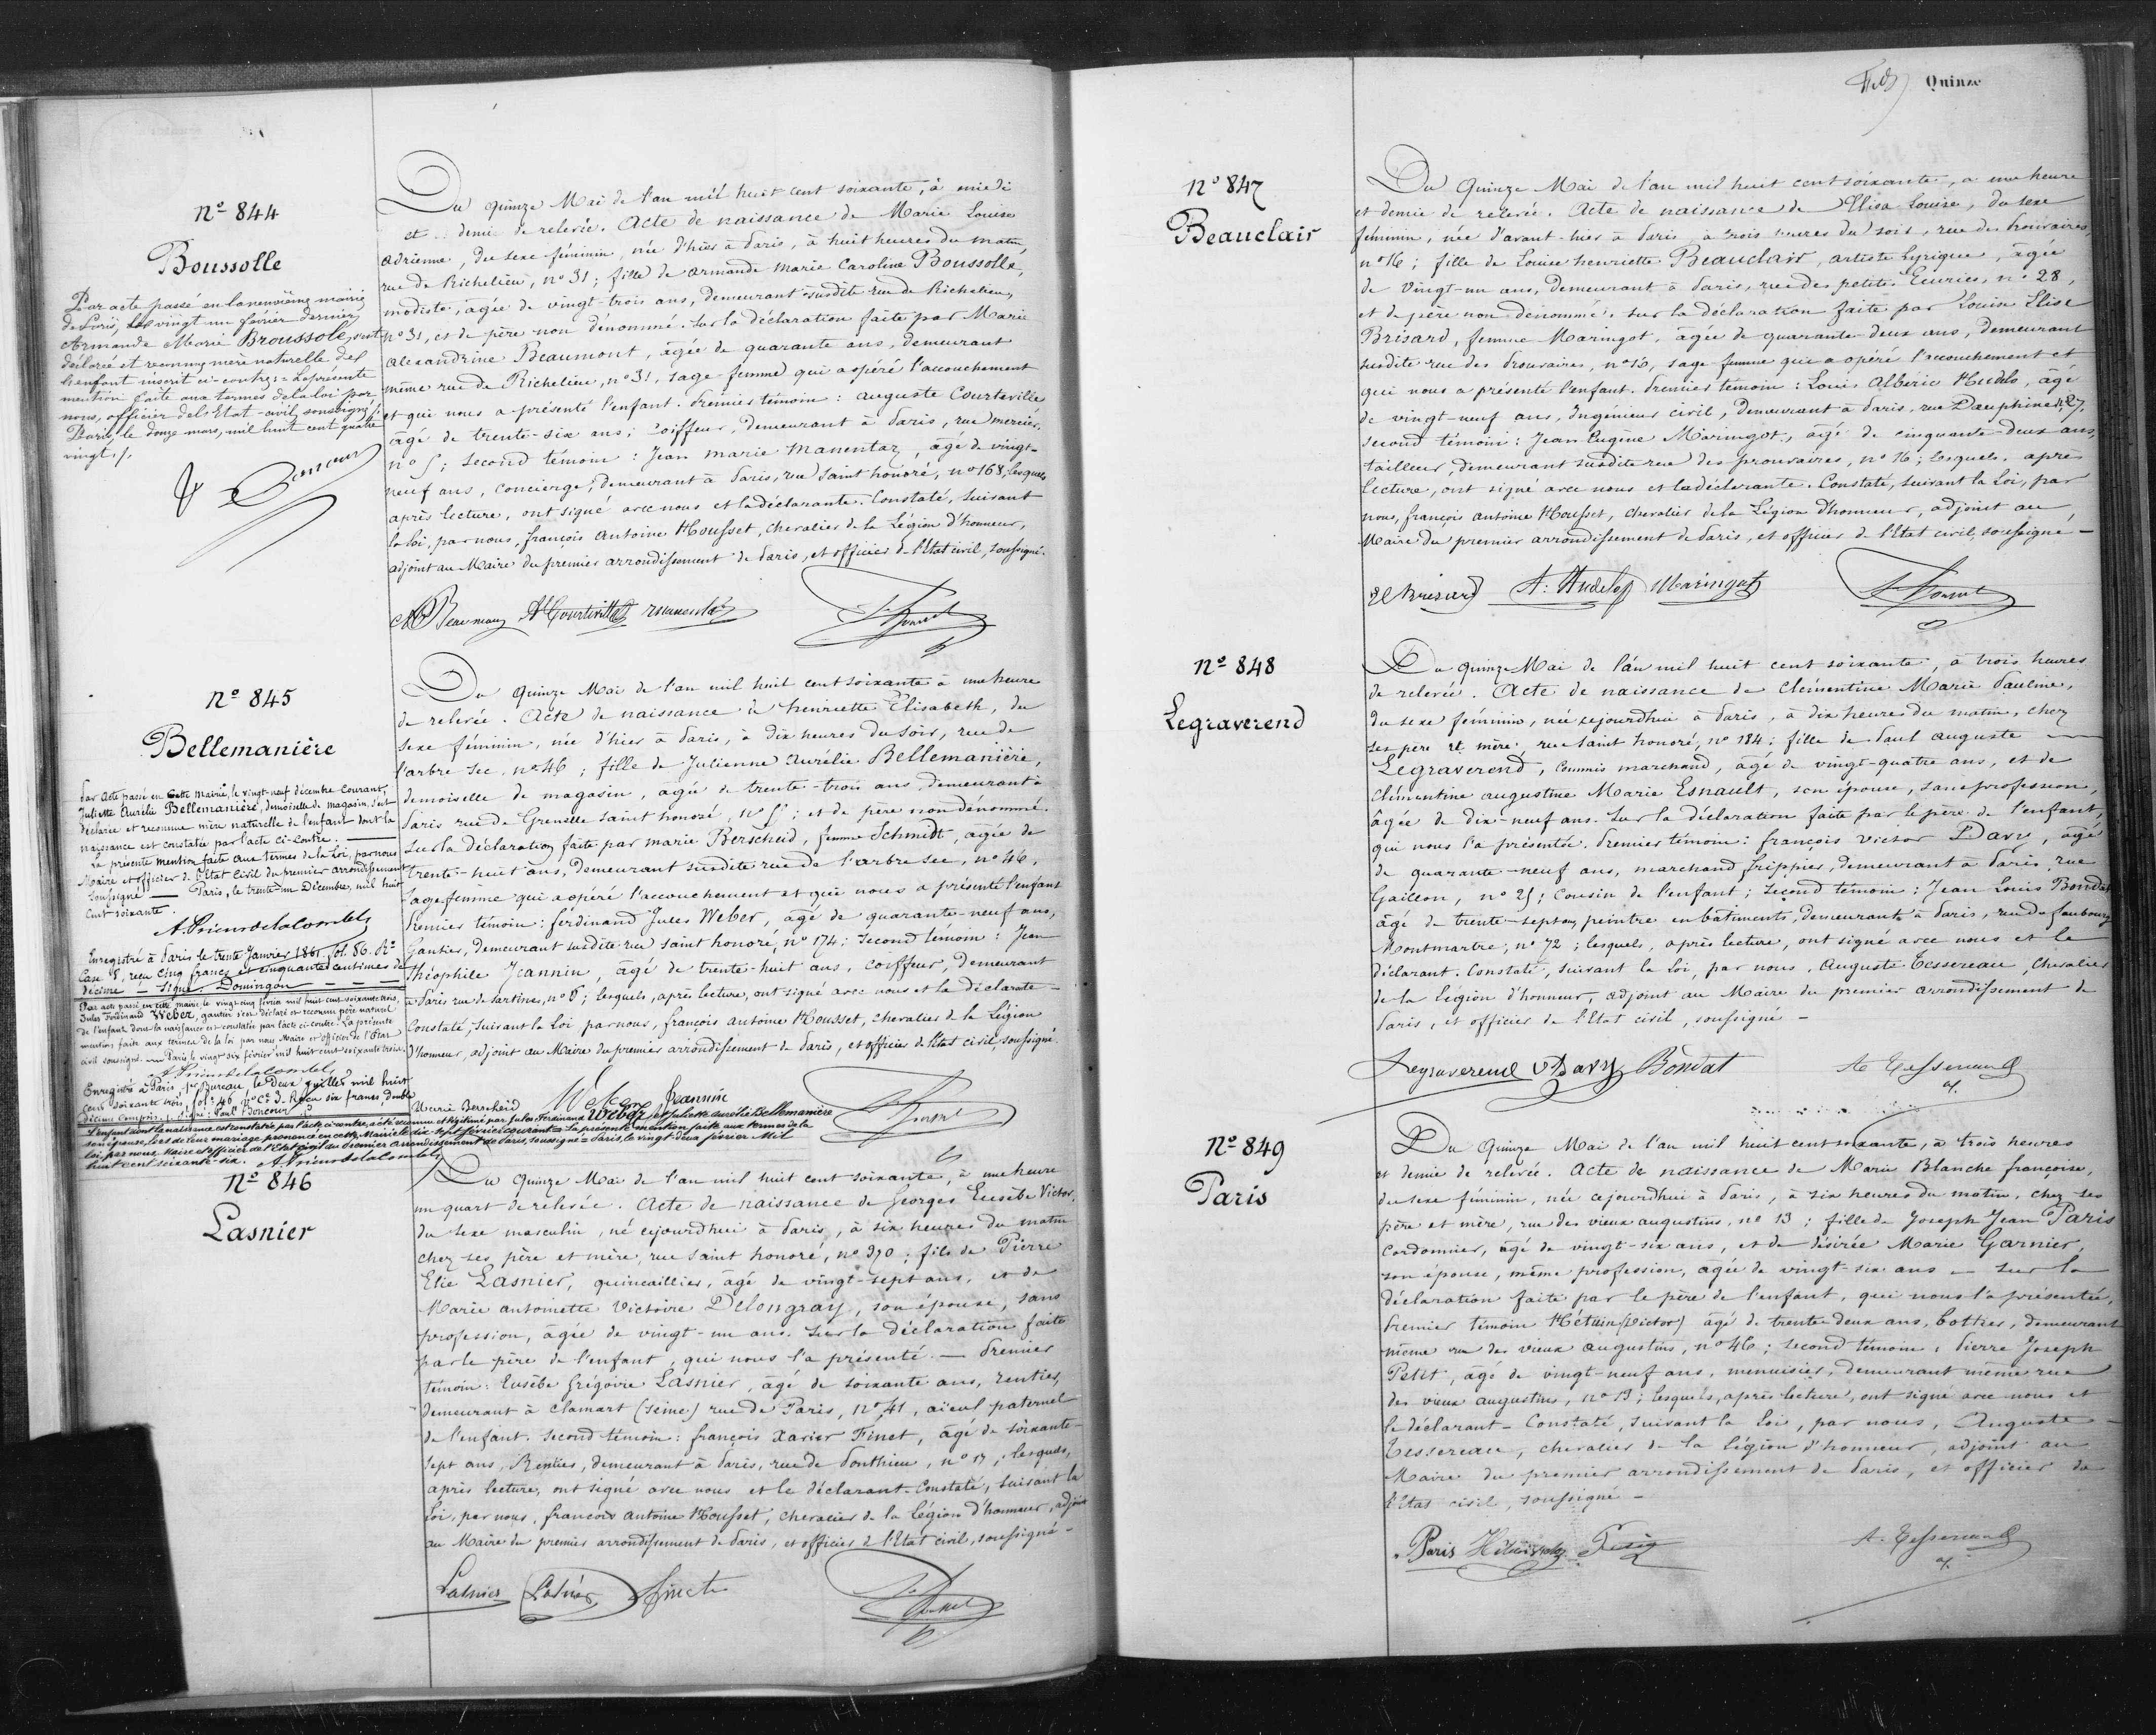 Nº 844
Boussolle
Par acte passé en la neuvième mairie
de Paris, le vingt un février dernier
Armande Marie Broussole, s'est
déclarée et reconnue mère naturelle de
l'enfant inscrit ci-contre = La présente
mention faite aux termes de la loi par
nous, officier de l'Etat-civil soussigné
Paris, le douze mars, mil huit cent quatre
vingt /.
Du quinze Mai de l'an mil huit cent soixante, à midi
et demi de relevée. Acte de naissance de Marie Louise
adrienne, du sexe féminin, née d'hier à Paris, à huit heures du matin,
rue de Richelieu, nº 31; fille de armande marie Caroline Boussolle,
modiste, âgée de vingt-trois ans, demeurant susdite rue de Richelieu,
nº 31, et de père non dénommé. Sur la déclaration faite par Marie
alexandrine Beaumont, âgée de quarante ans, demeurant
même rue de Richelieu, nº 31, sage-femme qui a opéré l'accouchement
et qui nous a présenté l'enfant. Premier témoin : auguste Courteville
âgé de trente-six ans, coiffeur, demeurant à Paris, rue mercier,
nº 5; second témoin : Jean marie manentaz, âgé de vingt-
neuf ans, concierge, demeurant à Paris, rue saint honoré, nº 168; lesquels
après lecture, ont signé avec nous et la déclarante. Constaté, suivant
la loi, par nous, françois antoine Housset, chevalier de la Légion d'honneur,
adjoint au Maire du premier arrondissement de Paris, et officier de l'Etat civil, soussigné.
Beaumont A Courteville manentaz
Nº 845
Bellemanière
Par Acte passé en cette Mairie, le vingt-neuf décembre courant,
Juliette Aurélie Bellemanière, demoiselle de magasin, s'est
déclarée et reconnue mère naturelle de l'enfant dont la
naissance est constatée par l'acte ci-contre.
La présente mention faite aux termes de la Loi, par nous
Maire et officier de l'Etat Civil du premier arrondissement
soussigné — Paris, le trente un Décembre, mil huit
cent soixante.
Enregistré à Paris le trente Janvier 1861 fol. 86. Rº
Case 8, reçu cinq francs et cinquante centimes de
décime — Signé Domingon
Par acte passé en cette mairie, le vingt cinq février mil huit cent soixante trois,
Jules Ferdinand Weber, gantier s'est déclaré et reconnu père naturel
de l'enfant dont la naissance est constatée par l'acte ci-contre. La présente
mention faite aux termes de la loi par nous Maire et officier de l'Etat
civil soussigné. Paris le vingt six février mil huit cent soixante trois.
Enregistré à Paris 1er Bureau, le deux juillet mil huit
cent soixante trois, fol. 46 Vº Cº 3. Reçu six francs, double
décime compris. Signé : Paul Boncour
L'enfant dont la naissance est constatée par l'acte ci-contre, a été reconnu et légitimé par Jules Ferdinand Weber et Juliette Aurélie Bellemanière
son épouse, lors de leur mariage prononcé en cette Mairie le dix-sept février courant = La présente mention faite aux termes de la
loi, par nous Maire et officier de l'Etat Civil du premier arrondissement de Paris, soussigné = Paris, le vingt-deux février Mil
huit cent soixante-six.
Du quinze Mai de l'an mil huit cent soixante à une heure
de relevée. Acte de naissance de henriette Elisabeth, du
sexe féminin, née d'hier à Paris, à dix heures du soir, rue de
l'arbre sec, nº 46; fille de Julienne Aurélie Bellemanière,
demoiselle de magasin, âgée de trente-trois ans, demeurant à
Paris rue de Grenelle saint honoré, nº 55; et de père non dénommé.
Sur la déclaration faite par marie Berscheid, femme Schmidt, âgée de
trente-huit ans, demeurant susdite rue de l'arbre sec, nº 46,
sage femme qui a opéré l'accouchement et qui nous a présenté l'enfant
Premier témoin : ferdinand Jules Weber, âgé de quarante-neuf ans,
Gantier, demeurant susdite rue saint honoré, nº 174; second témoin : Jean
théophile Jeannin, âgé de trente-huit ans, coiffeur, demeurant
à Paris rue de sartines, nº 6; lesquels, après lecture, ont signé avec nous et la déclarante —
Constaté, suivant la Loi par nous, françois antoine Housset, chevalier de la Légion
d'honneur, adjoint au Maire du premier arrondissement de Paris, et officier de l'Etat civil, soussigné.
Marie Berscheid Weber Jeannin
Nº 846
Lasnier
Du quinze Mai de l'an mil huit cent soixante, à une heure
un quart de relevée. Acte de naissance de Georges Eusèbe Victor,
du sexe masculin, né cejourdhui à Paris, à six heures du matin
chez ses père et mère, rue saint honoré, nº 370; fils de Pierre
Elie Lasnier, quincaillier, âgé de vingt-sept ans, et de
Marie antoinette Victoire Delongray, son épouse, sans
profession, âgée de vingt-un ans. Sur la déclaration faite
par le père de l'enfant, qui nous l'a présenté. — Premier
témoin : Eusèbe Grégoire Lasnier, âgé de soixante ans, rentier,
demeurant à Clamart (Seine) rue de Paris, nº 41, aïeul paternel
de l'enfant. second témoin : françois Xavier Finet, âgé de soixante-
sept ans, Rentier, demeurant à Paris, rue de Ponthieu, nº 17; lesquels,
après lecture, ont signé avec nous et le déclarant. Constaté, suivant la
Loi, par nous, françois antoine Housset, chevalier de la Légion d'honneur, adjoint
au Maire du premier arrondissement de Paris, et officier de l'Etat civil, soussigné —
Lasnier Lasnier Finet
Quinze
nº 847
Beauclair
Du Quinze Mai de l'an mil huit cent soixante, à une heure
et demie de relevée. Acte de naissance de Elisa Louise, du sexe
féminin, née d'avant-hier à Paris à trois heures du soir, rue des Prouvaires
nº 16; fille de Louise henriette Beauclair, artiste Lyrique, âgée
de vingt-un ans, demeurant à Paris, rue des petites Ecuries, nº 28,
et de père non dénommé. sur la déclaration faite par Louise Elise
Brisard, femme Maringot, âgée de quarante-deux ans, demeurant
susdite rue des Prouvaires, nº 16, sage femme qui a opéré l'accouchement et
qui nous a présenté l'enfant. Premier témoin : Louis Albéric Hudelo, âgé
de vingt-neuf ans, Ingénieur civil, demeurant à Paris, rue Dauphine, 27,
second témoin : Jean Eugène Maringot, âgé de cinquante-deux ans,
tailleur, demeurant susdite rue des prouvaires, nº 16; lesquels, après
lecture, ont signé avec nous et la déclarante. Constaté, suivant la Loi, par
nous, françois antoine Housset, chevalier de la Légion d'honneur, adjoint au
Maire du premier arrondissement de Paris, et officier de l'Etat civil, soussigné —
Brisard A. Hudelo Maringot
Nº 848
Legraverend
Du quinze Mai de l'an mil huit cent soixante, à trois heures
de relevée. Acte de naissance de Clémentine Marie Pauline,
du sexe féminin, née cejourdhui à Paris, à dix heures du matin, chez
ses père et mère, rue Saint honoré, nº 184; fille de Paul auguste
Legraverend, commis marchand, âgé de vingt-quatre ans, et de
Clémentine augustine Marie Esnault, son épouse, sans profession,
âgée de dix-neuf ans. Sur la déclaration faite par le père de l'enfant,
qui nous l'a présentée. Premier témoin : françois victor Davy, âgé
de quarante-neuf ans, marchand frippier, demeurant à Paris, rue
Gaillon, nº 25; cousin de l'enfant; second témoin : Jean Louis Bondat
âgé de trente-sept ans, peintre en bâtiments, demeurant à Paris, rue du faubourg
Montmartre, nº 72; lesquels, après lecture, ont signé avec nous et le
déclarant. Constaté, suivant la loi, par nous, Auguste Tessereau, Chevalier
de la légion d'honneur, adjoint au Maire du premier arrondissement de
Paris, et officier de l'Etat civil, soussigné —
Legraverend VDavy Bondat A Tessereau
Nº 849
Paris
Du Quinze Mai de l'an mil huit cent soixante, à trois heures
et demie de relevée. Acte de naissance de Marie Blanche françoise,
du sexe féminin, née cejourdhui à Paris, à six heures du matin, chez ses
père et mère, rue des vieux augustins, nº 13; fille de Joseph Jean Paris
Cordonnier, âgé de vingt-six ans, et de désirée Marie Garnier,
son épouse, même profession, âgée de vingt-six ans — sur la
déclaration faite par le père de l'enfant, qui nous l'a présentée.
Premier témoin Hétuin (Victor) âgé de trente-deux ans, bottier, demeurant
même rue des vieux augustins, nº 46; second témoin : Pierre Joseph
Petit, âgé de vingt-neuf ans, menuisier, demeurant même rue
des vieux augustins, nº 13; lesquels, après lecture, ont signé avec nous et
le déclarant — Constaté, suivant la loi, par nous, Auguste
Tessereau, chevalier de la Légion d'honneur, adjoint au
Maire du premier arrondissement de Paris, et officier de
l'Etat civil, soussigné —
Paris Petit A. Tessereau